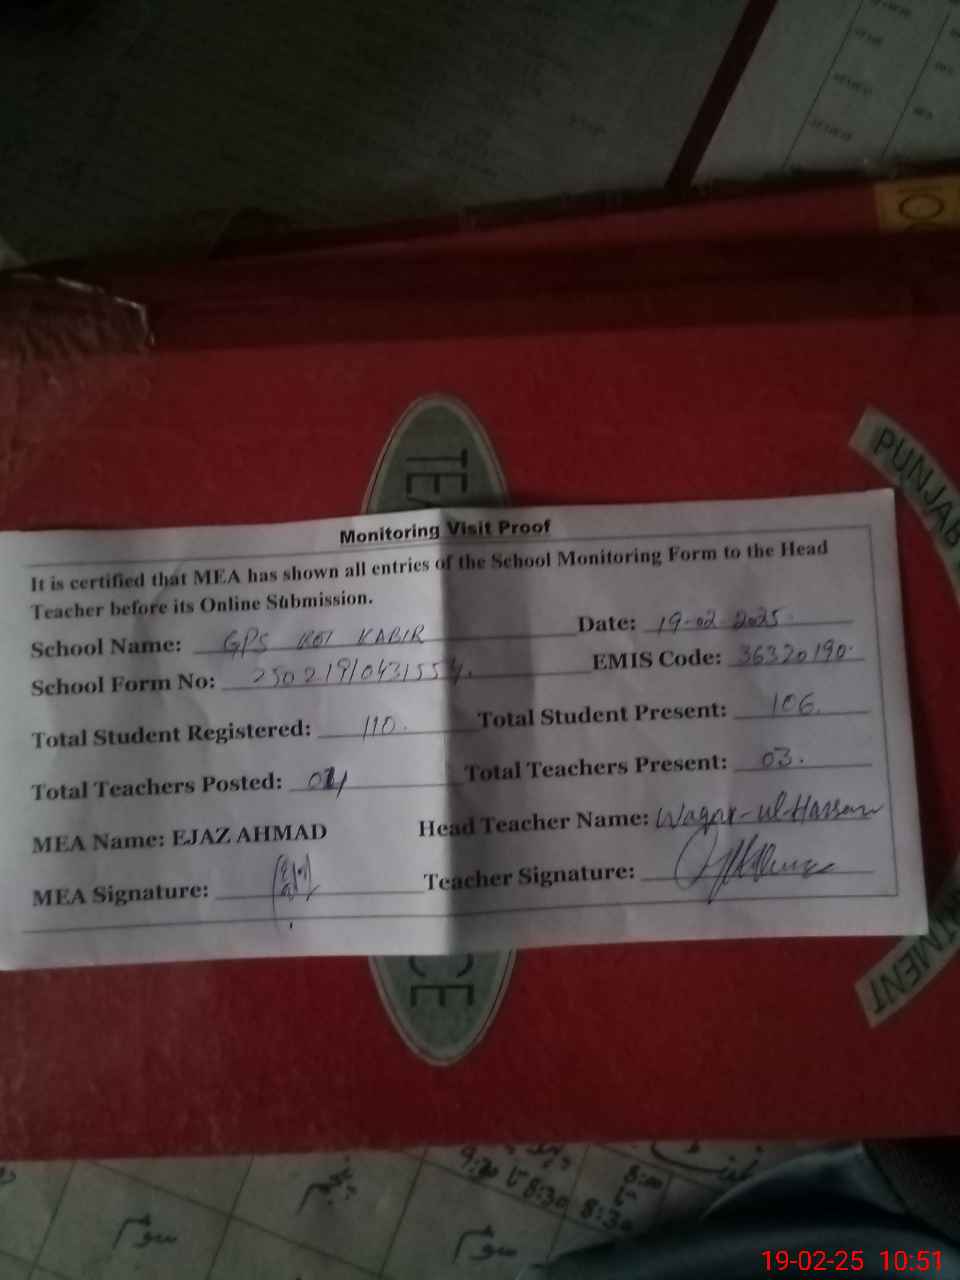 TEA
PUNJAB
Monitoring Visit Proof
It is certified that MEA has shown all entries of the School Monitoring Form to the Head
Teacher before its Online Submission.
School Name: GPS KOT KABIR Date: 19-02-2025.
School Form No: 25021910431554. EMIS Code: 36320190.
Total Student Registered: 110. Total Student Present: 106.
Total Teachers Posted: 04 Total Teachers Present: 03.
MEA Name: EJAZ AHMAD Head Teacher Name: Waqar-ul-Hassan
MEA Signature: Teacher Signature:
CE
TMENT
8:30 تا 9:30
8:00 تا 8:30
سوئم
سوئم
19-02-25 10:51